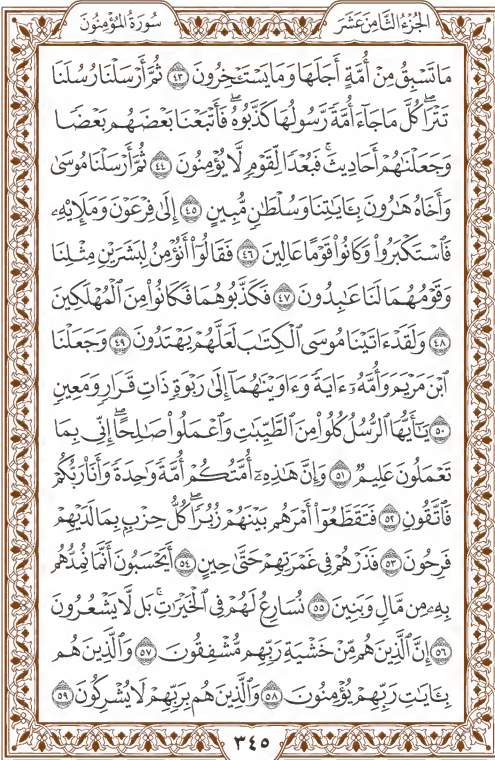 سُورَةُ المُؤْمِنُونَ
الجُزْءُ الثَّامِنَ عَشَرَ
مَا تَسْبِقُ مِنْ أُمَّةٍ أَجَلَهَا وَمَا يَسْتَـْٔخِرُونَ ٤٣ ثُمَّ أَرْسَلْنَا رُسُلَنَا
تَتْرَا ۖ كُلَّ مَا جَآءَ أُمَّةً رَّسُولُهَا كَذَّبُوهُ ۚ فَأَتْبَعْنَا بَعْضَهُم بَعْضًا
وَجَعَلْنَٰهُمْ أَحَادِيثَ ۚ فَبُعْدًا لِّقَوْمٍ لَّا يُؤْمِنُونَ ٤٤ ثُمَّ أَرْسَلْنَا مُوسَىٰ
وَأَخَاهُ هَٰرُونَ بِـَٔايَٰتِنَا وَسُلْطَٰنٍ مُّبِينٍ ٤٥ إِلَىٰ فِرْعَوْنَ وَمَلَإِيْهِۦ
فَٱسْتَكْبَرُوا۟ وَكَانُوا۟ قَوْمًا عَالِينَ ٤٦ فَقَالُوٓا۟ أَنُؤْمِنُ لِبَشَرَيْنِ مِثْلِنَا
وَقَوْمُهُمَا لَنَا عَٰبِدُونَ ٤٧ فَكَذَّبُوهُمَا فَكَانُوا۟ مِنَ ٱلْمُهْلَكِينَ
٤٨ وَلَقَدْ ءَاتَيْنَا مُوسَى ٱلْكِتَٰبَ لَعَلَّهُمْ يَهْتَدُونَ ٤٩ وَجَعَلْنَا
ٱبْنَ مَرْيَمَ وَأُمَّهُۥٓ ءَايَةً وَءَاوَيْنَٰهُمَآ إِلَىٰ رَبْوَةٍ ذَاتِ قَرَارٍ وَمَعِينٍ
٥٠ يَٰٓأَيُّهَا ٱلرُّسُلُ كُلُوا۟ مِنَ ٱلطَّيِّبَٰتِ وَٱعْمَلُوا۟ صَٰلِحًا ۖ إِنِّى بِمَا
تَعْمَلُونَ عَلِيمٌ ٥١ وَإِنَّ هَٰذِهِۦٓ أُمَّتُكُمْ أُمَّةً وَٰحِدَةً وَأَنَا۠ رَبُّكُمْ
فَٱتَّقُونِ ٥٢ فَتَقَطَّعُوٓا۟ أَمْرَهُم بَيْنَهُمْ زُبُرًا ۖ كُلُّ حِزْبٍۭ بِمَا لَدَيْهِمْ
فَرِحُونَ ٥٣ فَذَرْهُمْ فِى غَمْرَتِهِمْ حَتَّىٰ حِينٍ ٥٤ أَيَحْسَبُونَ أَنَّمَا نُمِدُّهُم
بِهِۦ مِن مَّالٍ وَبَنِينَ ٥٥ نُسَارِعُ لَهُمْ فِى ٱلْخَيْرَٰتِ ۚ بَل لَّا يَشْعُرُونَ
٥٦ إِنَّ ٱلَّذِينَ هُم مِّنْ خَشْيَةِ رَبِّهِم مُّشْفِقُونَ ٥٧ وَٱلَّذِينَ هُم
بِـَٔايَٰتِ رَبِّهِمْ يُؤْمِنُونَ ٥٨ وَٱلَّذِينَ هُم بِرَبِّهِمْ لَا يُشْرِكُونَ ٥٩
٣٤٥